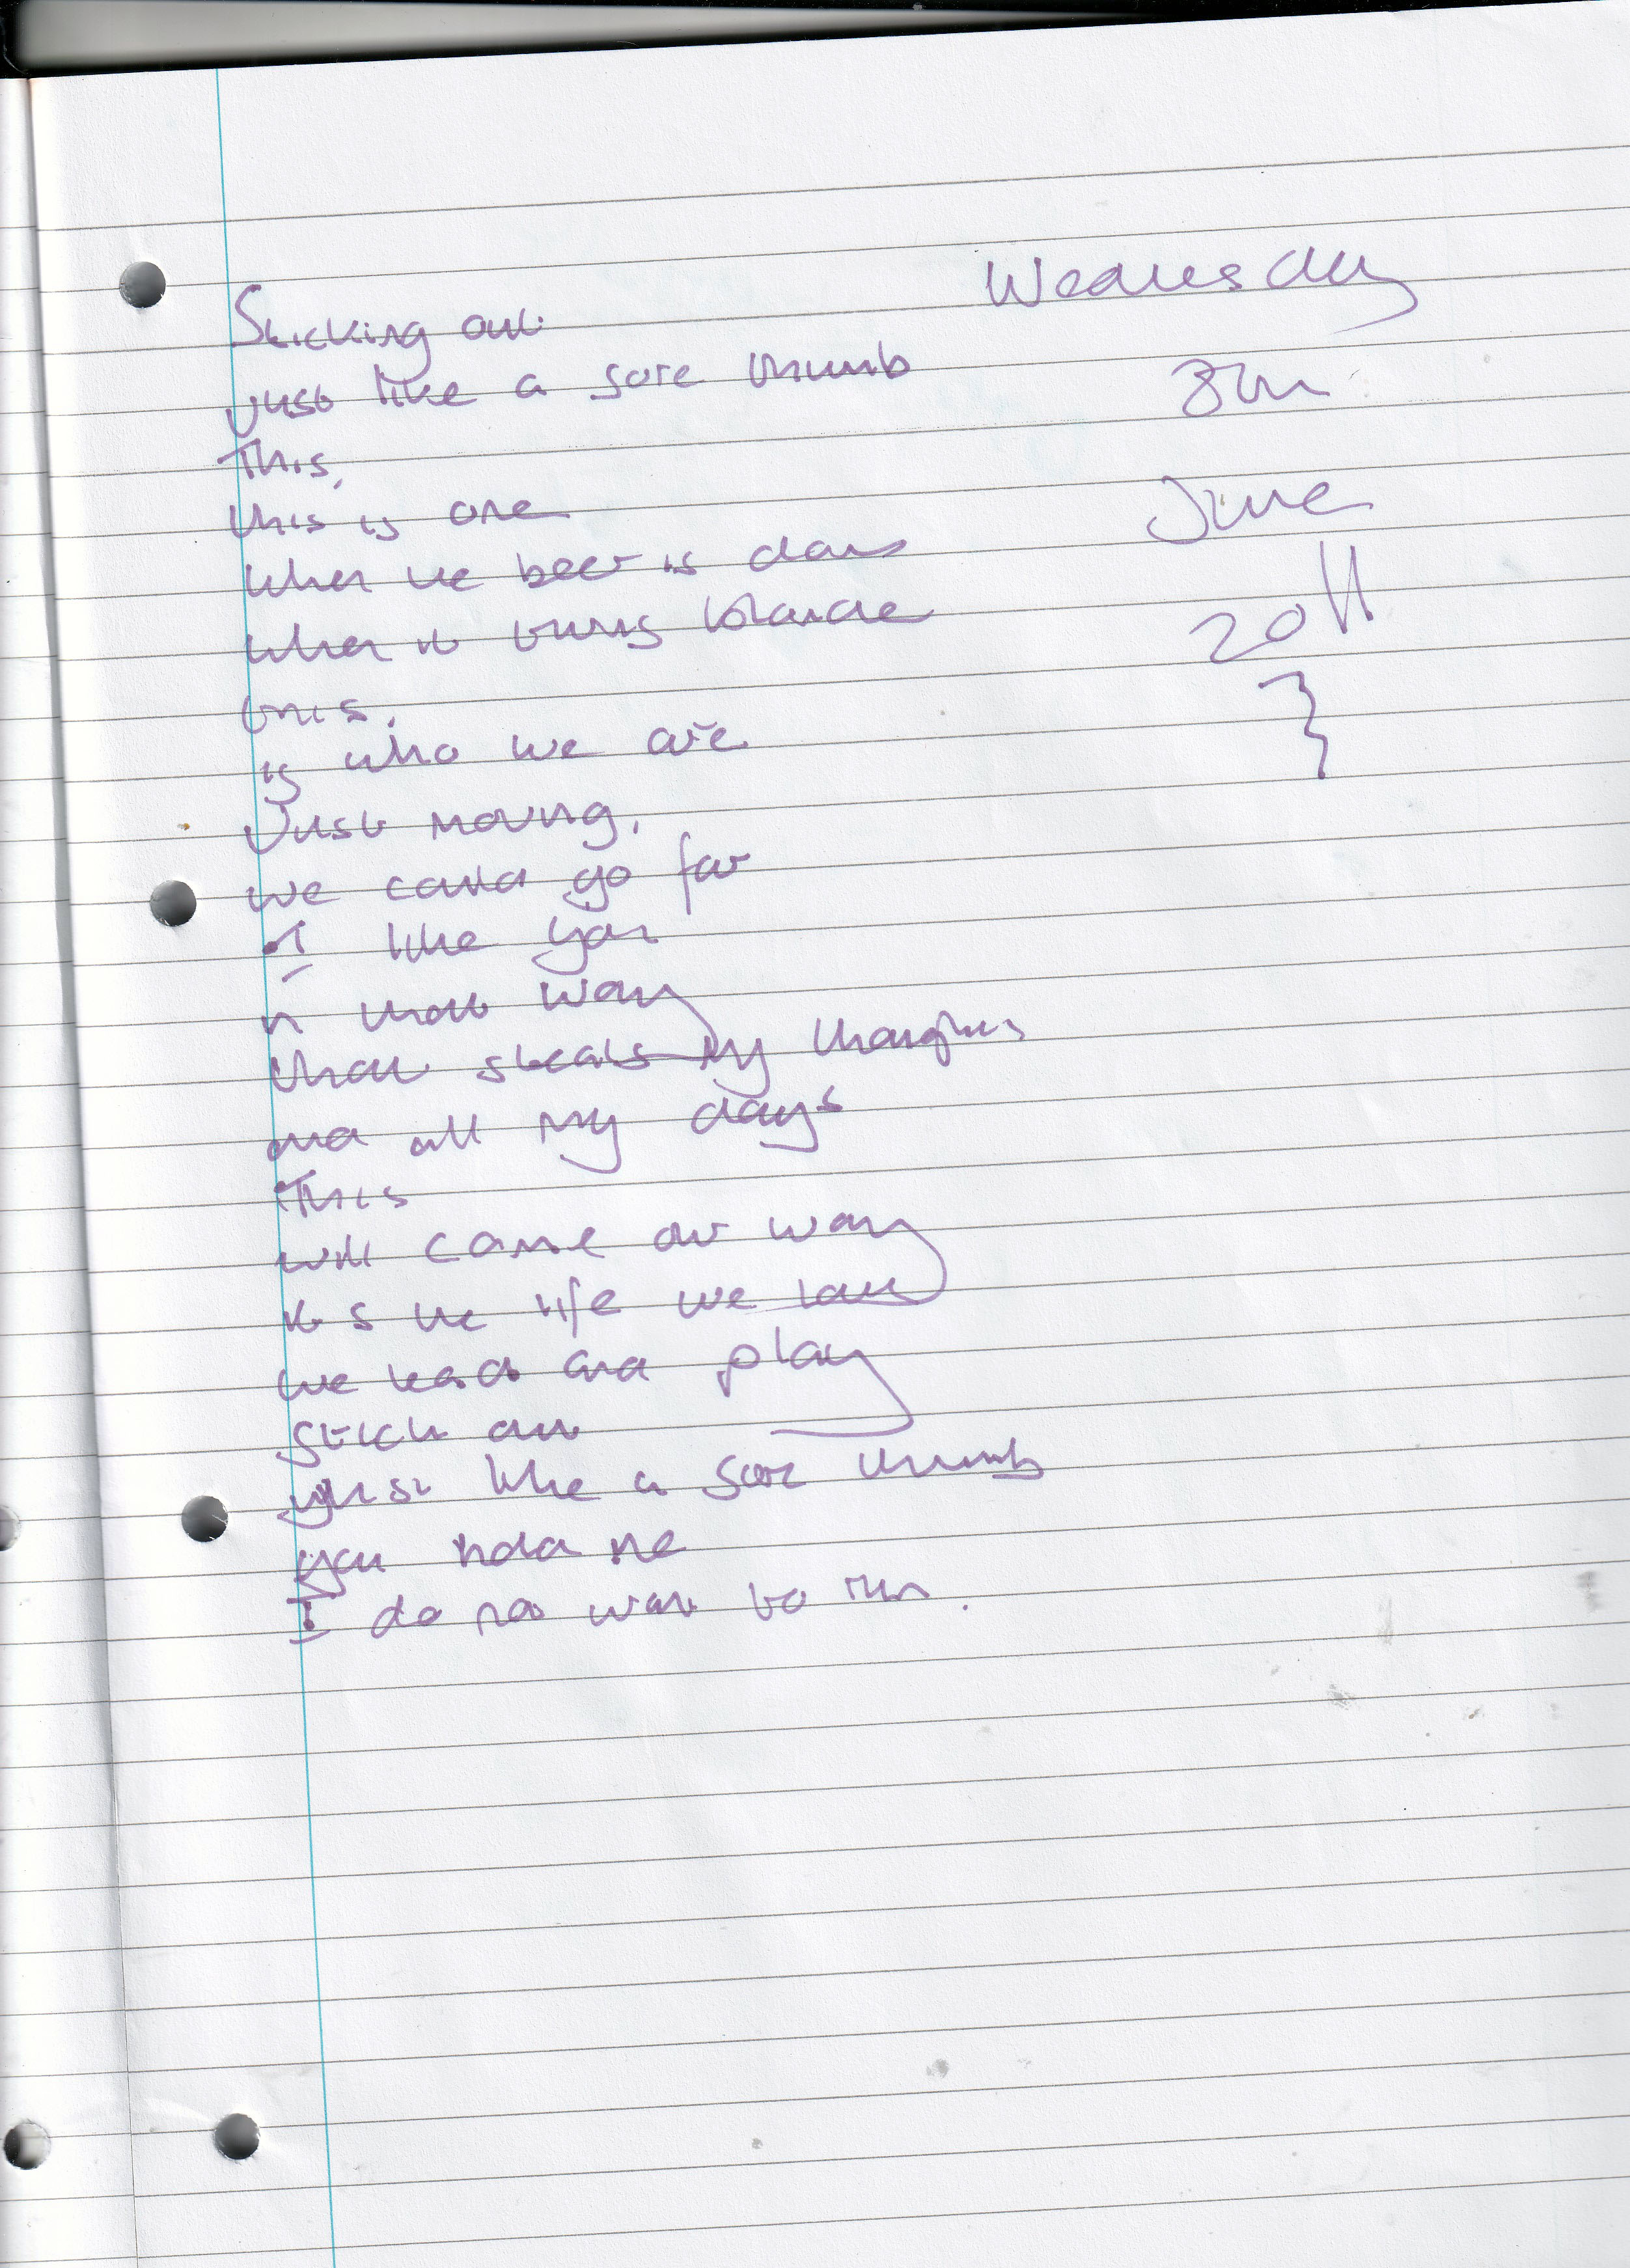 Wednesday
8th
June
2011
Sticking out
just like a sore thumb
This,
this is one
when the beer is
when it turns blonde
this,
is who we are
Just moving,
we could go far
I like you
n that way
that steals my thoughts
and all my days
This
will come our way
its the life we
we lead and play
stick out
just like a sore thumb
you hold me
I do not want to run.